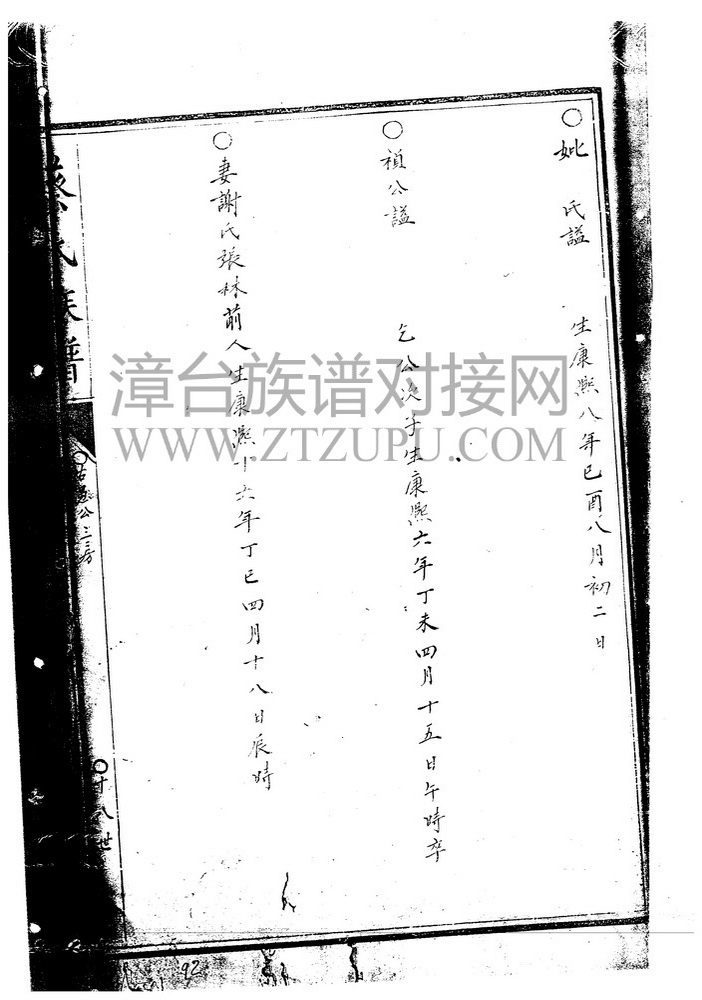 ○妣　氏諡　生康熙八年己酉八月初二日
○禎公諡　乞公次子生康熙六年丁未四月十五日午時卒
○妻謝氏張林前人生康熙十六年丁巳四月十八日辰時
蔡氏族譜
公三房
○十八世
漳台族谱对接网
WWW.ZTZUPU.COM
92